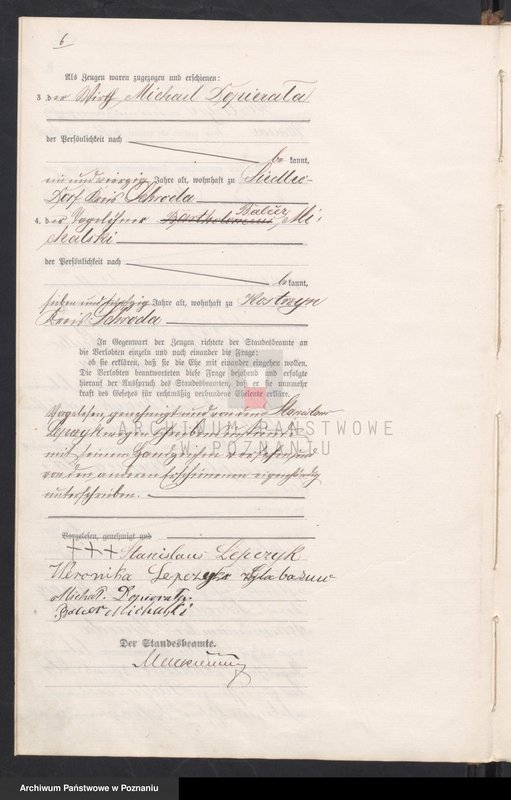 6
Als Zeugen waren zugezogen und erschienen:
3. der Wirth Michael Dopierala
der Persönlichkeit nach
be kannt,
ein und vierzig Jahre alt, wohnhaft zu Siedlec-
Dorf Kreis Schroda
4. der Bartholomeus Balcer Mi-
chalski
der Persönlichkeit nach
be kannt,
sieben und Jahre alt, wohnhaft zu Kostrzyn
Kreis Schroda
In Gegenwart der Zeugen richtete der Standesbeamte an
die Verlobten einzeln und nach einander die Frage:
ob sie erklären, daß sie die Ehe mit einander eingehen wollen.
Die Verlobten beantworteten diese Frage bejahend und erfolgte
hierauf der Ausspruch des Standesbeamten, daß er sie nunmehr
kraft des Gesetzes für rechtmäßig verbundene Eheleute erkläre.
Vorgelesen, genehmigt und von dem Stanislaus
Lepczyk wegen Schreibensunkunde
mit seinem Handzeichen versehen und
von den anderen Erschienenen eigenhändig
unterschrieben.
ARCHIWUM PAŃSTWOWE
W POZNANIU
Vorgelesen, genehmigt und
+++ Stanislaus Lepczyk
Weronika Lepczyk
Michał Dopierała
Balcer Michalski
Der Standesbeamte.
Archiwum Państwowe w Poznaniu